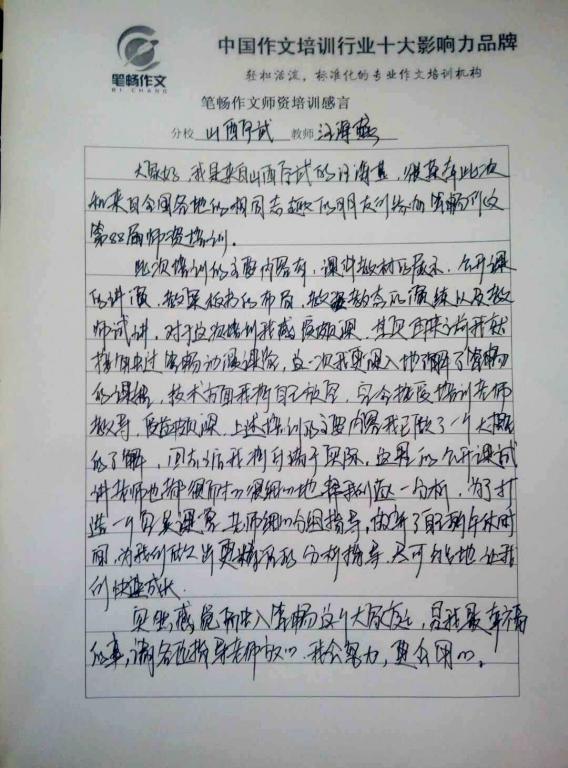 笔畅作文
BI CHANG
中国作文培训行业十大影响力品牌
轻松活泼，标准化的专业作文培训机构
笔畅作文师资培训感言
分校 山西应试 教师 汪海燕
大家好，我是来自山西应试的汪海燕，很荣幸此次
和来自全国各地的相同志趣的朋友们参加笔畅
第88届师资培训。
此次培训的主要内容有，课件教材的展示，公开课
的讲演，教案板书的布局，教姿教态的演练以及教
师试讲，对于这次培训我感受颇深。其实再来之前我就
笔畅动漫课堂，这一次我更深入地了解了笔畅
的课程，技术方面我将自己放空，完全接受培训老师
教导，受益颇深。上述培训的主要内容我已做了一个大概
的了解，回去后我将付诸于实际，这里的公开课试
讲老师也都很耐心很细心地给我们逐一分析，为了打
造一个完美课堂，老师细心分组指导，牺牲了自己的午休时
间，为我们做出更精彩的分析指导，尽可能地让我
们快速成长。
真感觉加入笔畅这个大家庭，是我最幸福
的事，请各位指导老师放心，我会努力，更会用心。